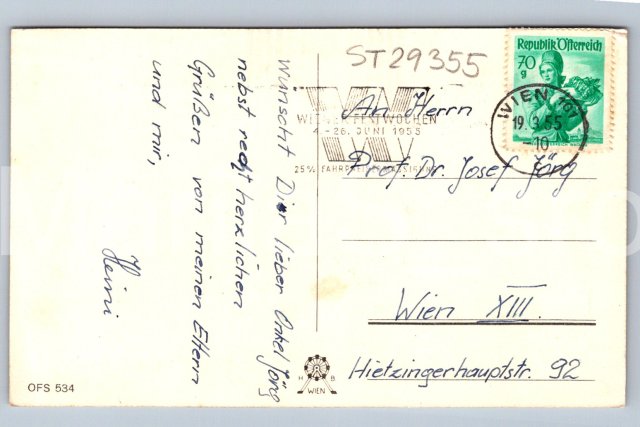 ST29355
Republik Österreich
70
g
WIEN 101
19.3.55
-10
WIENER FESTWOCHEN
4.-26. JUNI 1955
25% FAHRPREISERMÄSSIGUNG
An Herrn
Prof. Dr. Josef Jörg
Wien XIII.
Hietzingerhauptstr. 92
wünscht Dir lieber Onkel Jörg
nebst recht herzlichen
Grüßen von meinen Eltern
und mir,
Heini
H B
WIEN
OFS 534